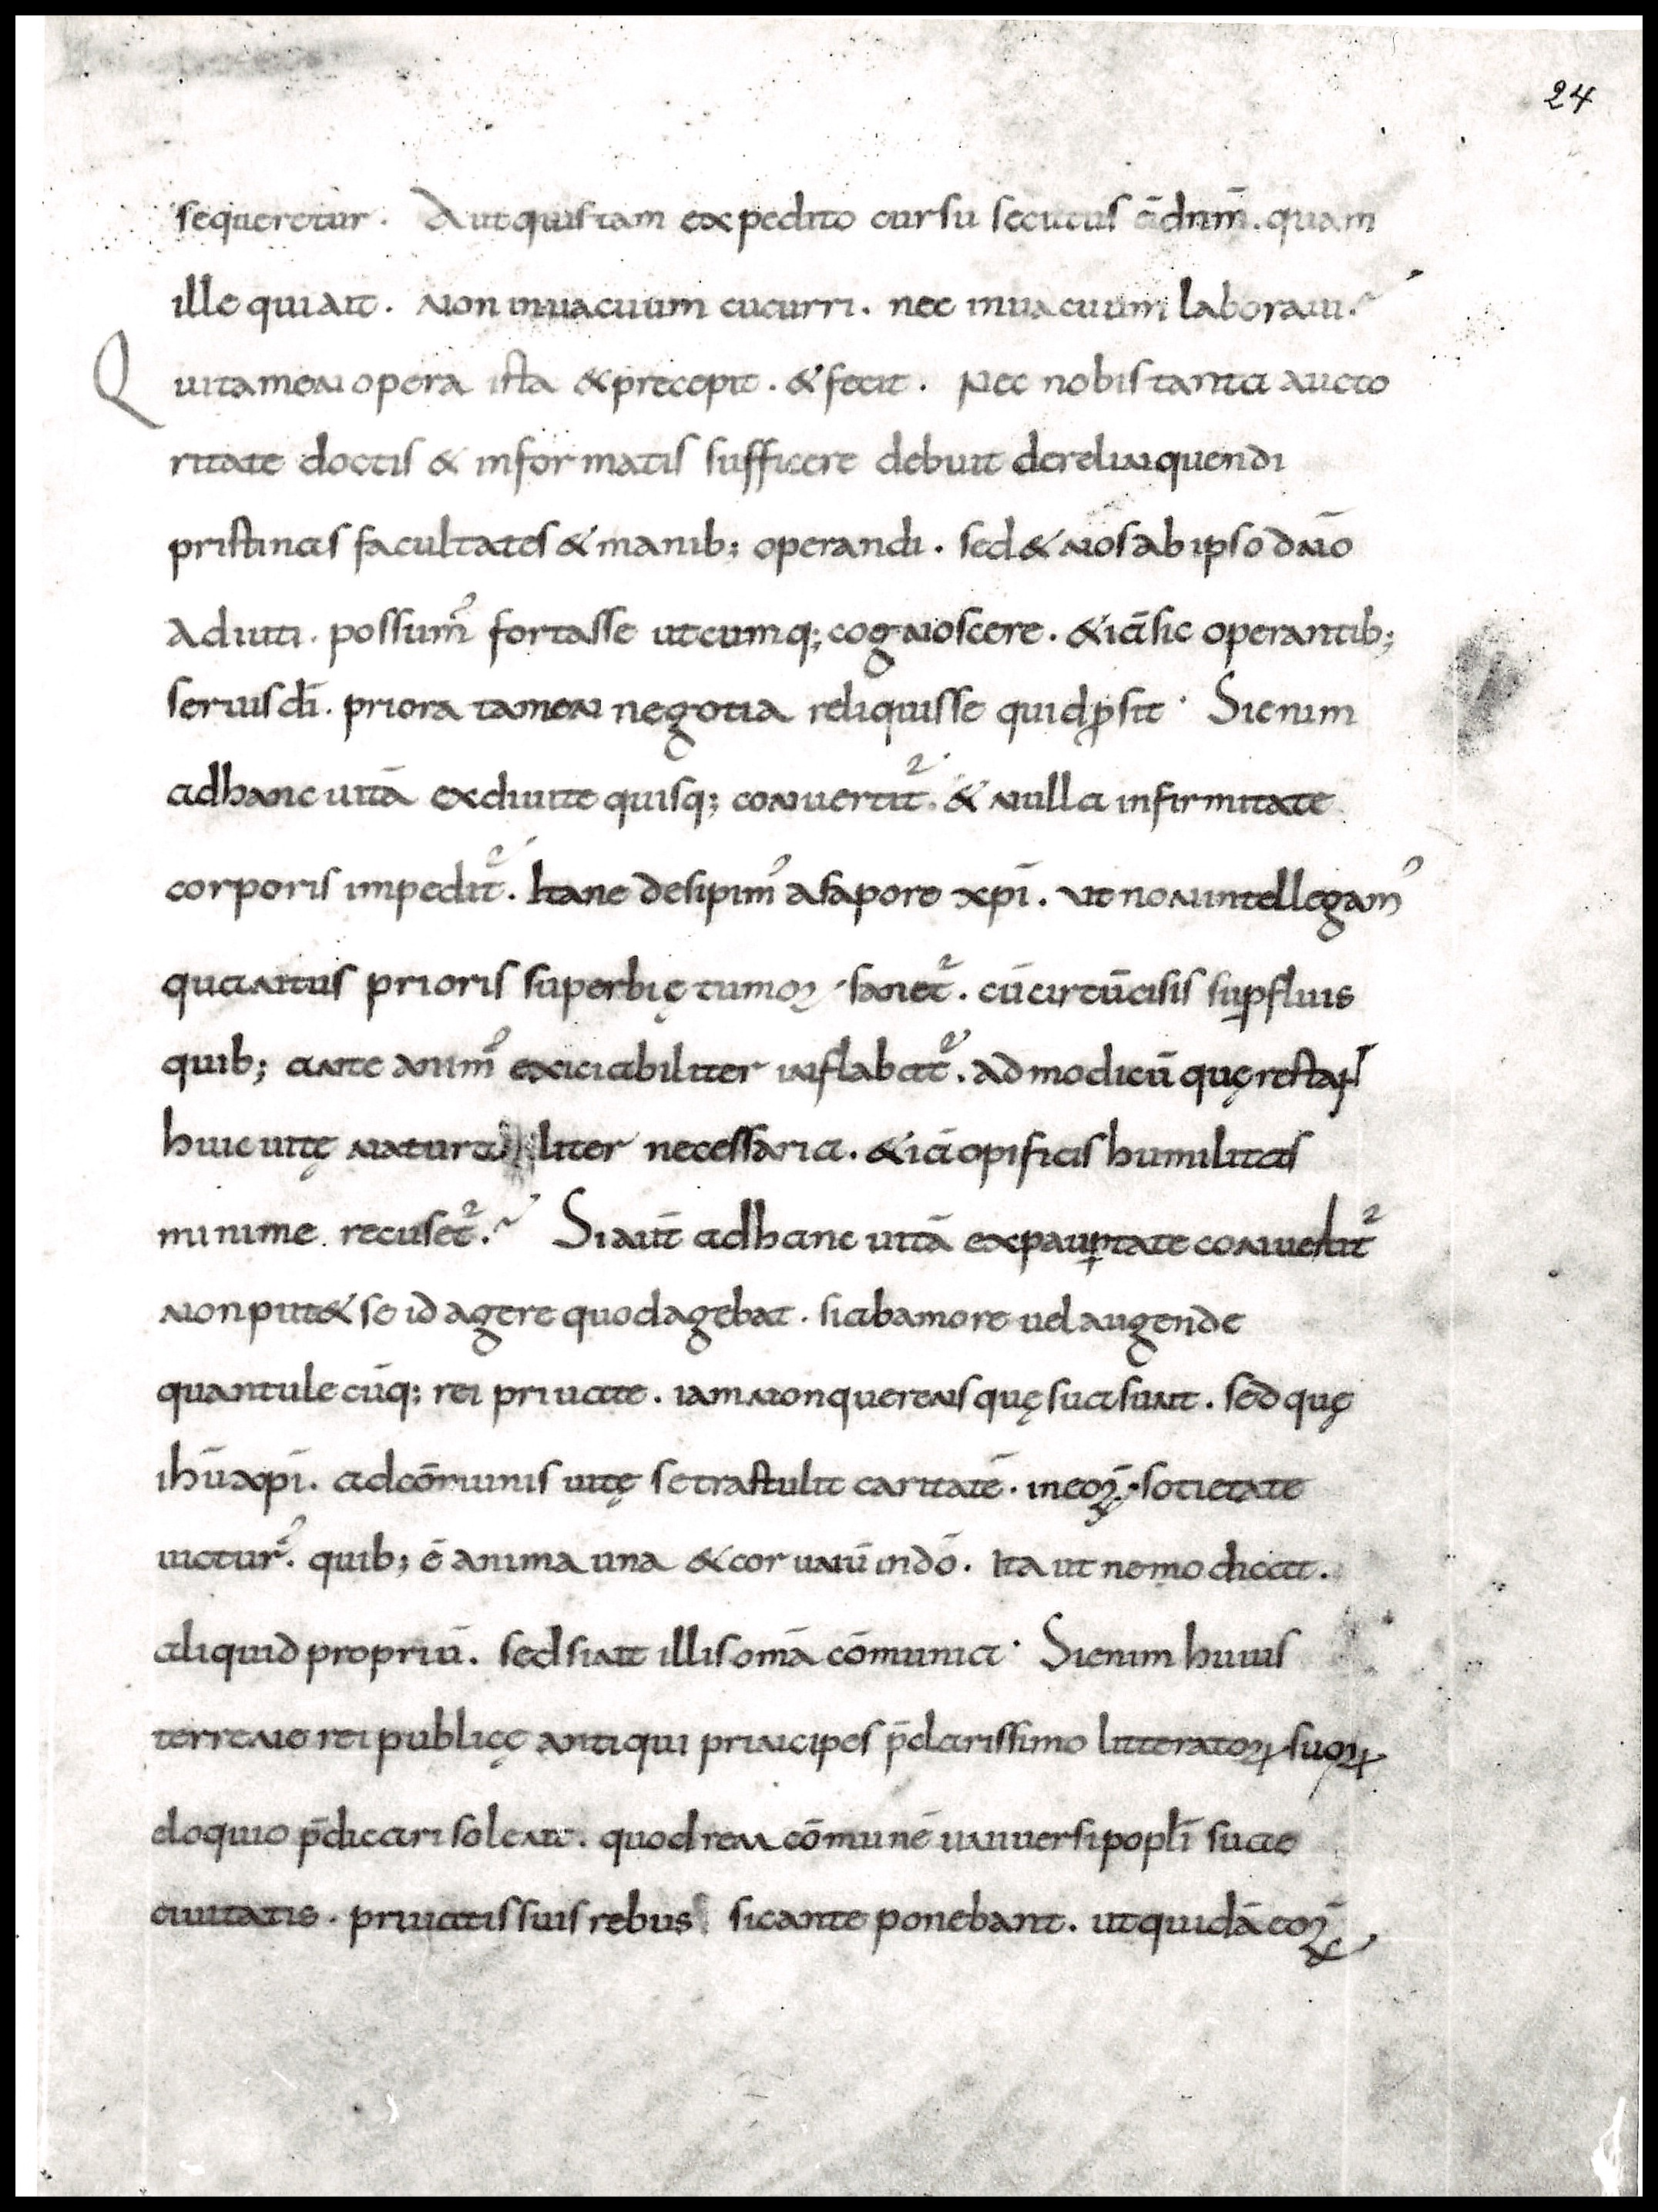 24
sequeretur. Aut quis tam expedito cursu secutus ē dnm̄. quam
ille qui ait. Non in uacuum cucurri. nec in uacuum laboraui.
Qui tamen opera ista & precepit. & fecit. Nec nobis tanta aucto
ritate doctis & informatis sufficere debuit derelinquendi
pristinas facultates & manib; operandi. sed & nos ab ipso dn̄o
adiuti. possum᾽ fortasse utcumq; cognoscere. & iā sic operantib;
seruis dī. priora tamen negotia reliquisse quid ꝓsit. Si enim
ad hanc uitā ex diuite quisq; conuertit᾽. & nulla infirmitate
corporis impedit᾽. Itane desipim᾽ a sapore xpī. ut non intellegam᾽
quantus prioris superbię tumoꝝ sanet᾽. cū circūcisis suꝑfluis
quib; ante anim᾽ exiciabiliter inflabat᾽. ad modicū quę restant
huic uitę naturaliter necessaria. & iā opificis humilitas
minime recuset᾽. Si aut̄ ad hanc uitā ex pauꝑtate conuertit᾽
non put& se id agere quod agebat. si ab amore uel augende
quantulecūq; rei priuate. iam non querens quę sua sunt. sed quę
ihū xpī. ad cōmunis uitę se trastulit caritatē. in eoꝝ sotietate
uictur᾽. quib; ē anima una & cor unū in dō. Ita ut nemo dicat.
aliquid propriū. sed sint illis omā cōmunia. Si enim huius
terrene rei publicę antiqui principes p̄clarissimo litteratoꝝ suoꝝ
eloquio p̄dicari solent. quod rem cōmunē uniuersi poplī suae
ciuitatis. priuatis suis rebus sic anteponebant. ut quidā eoꝝ